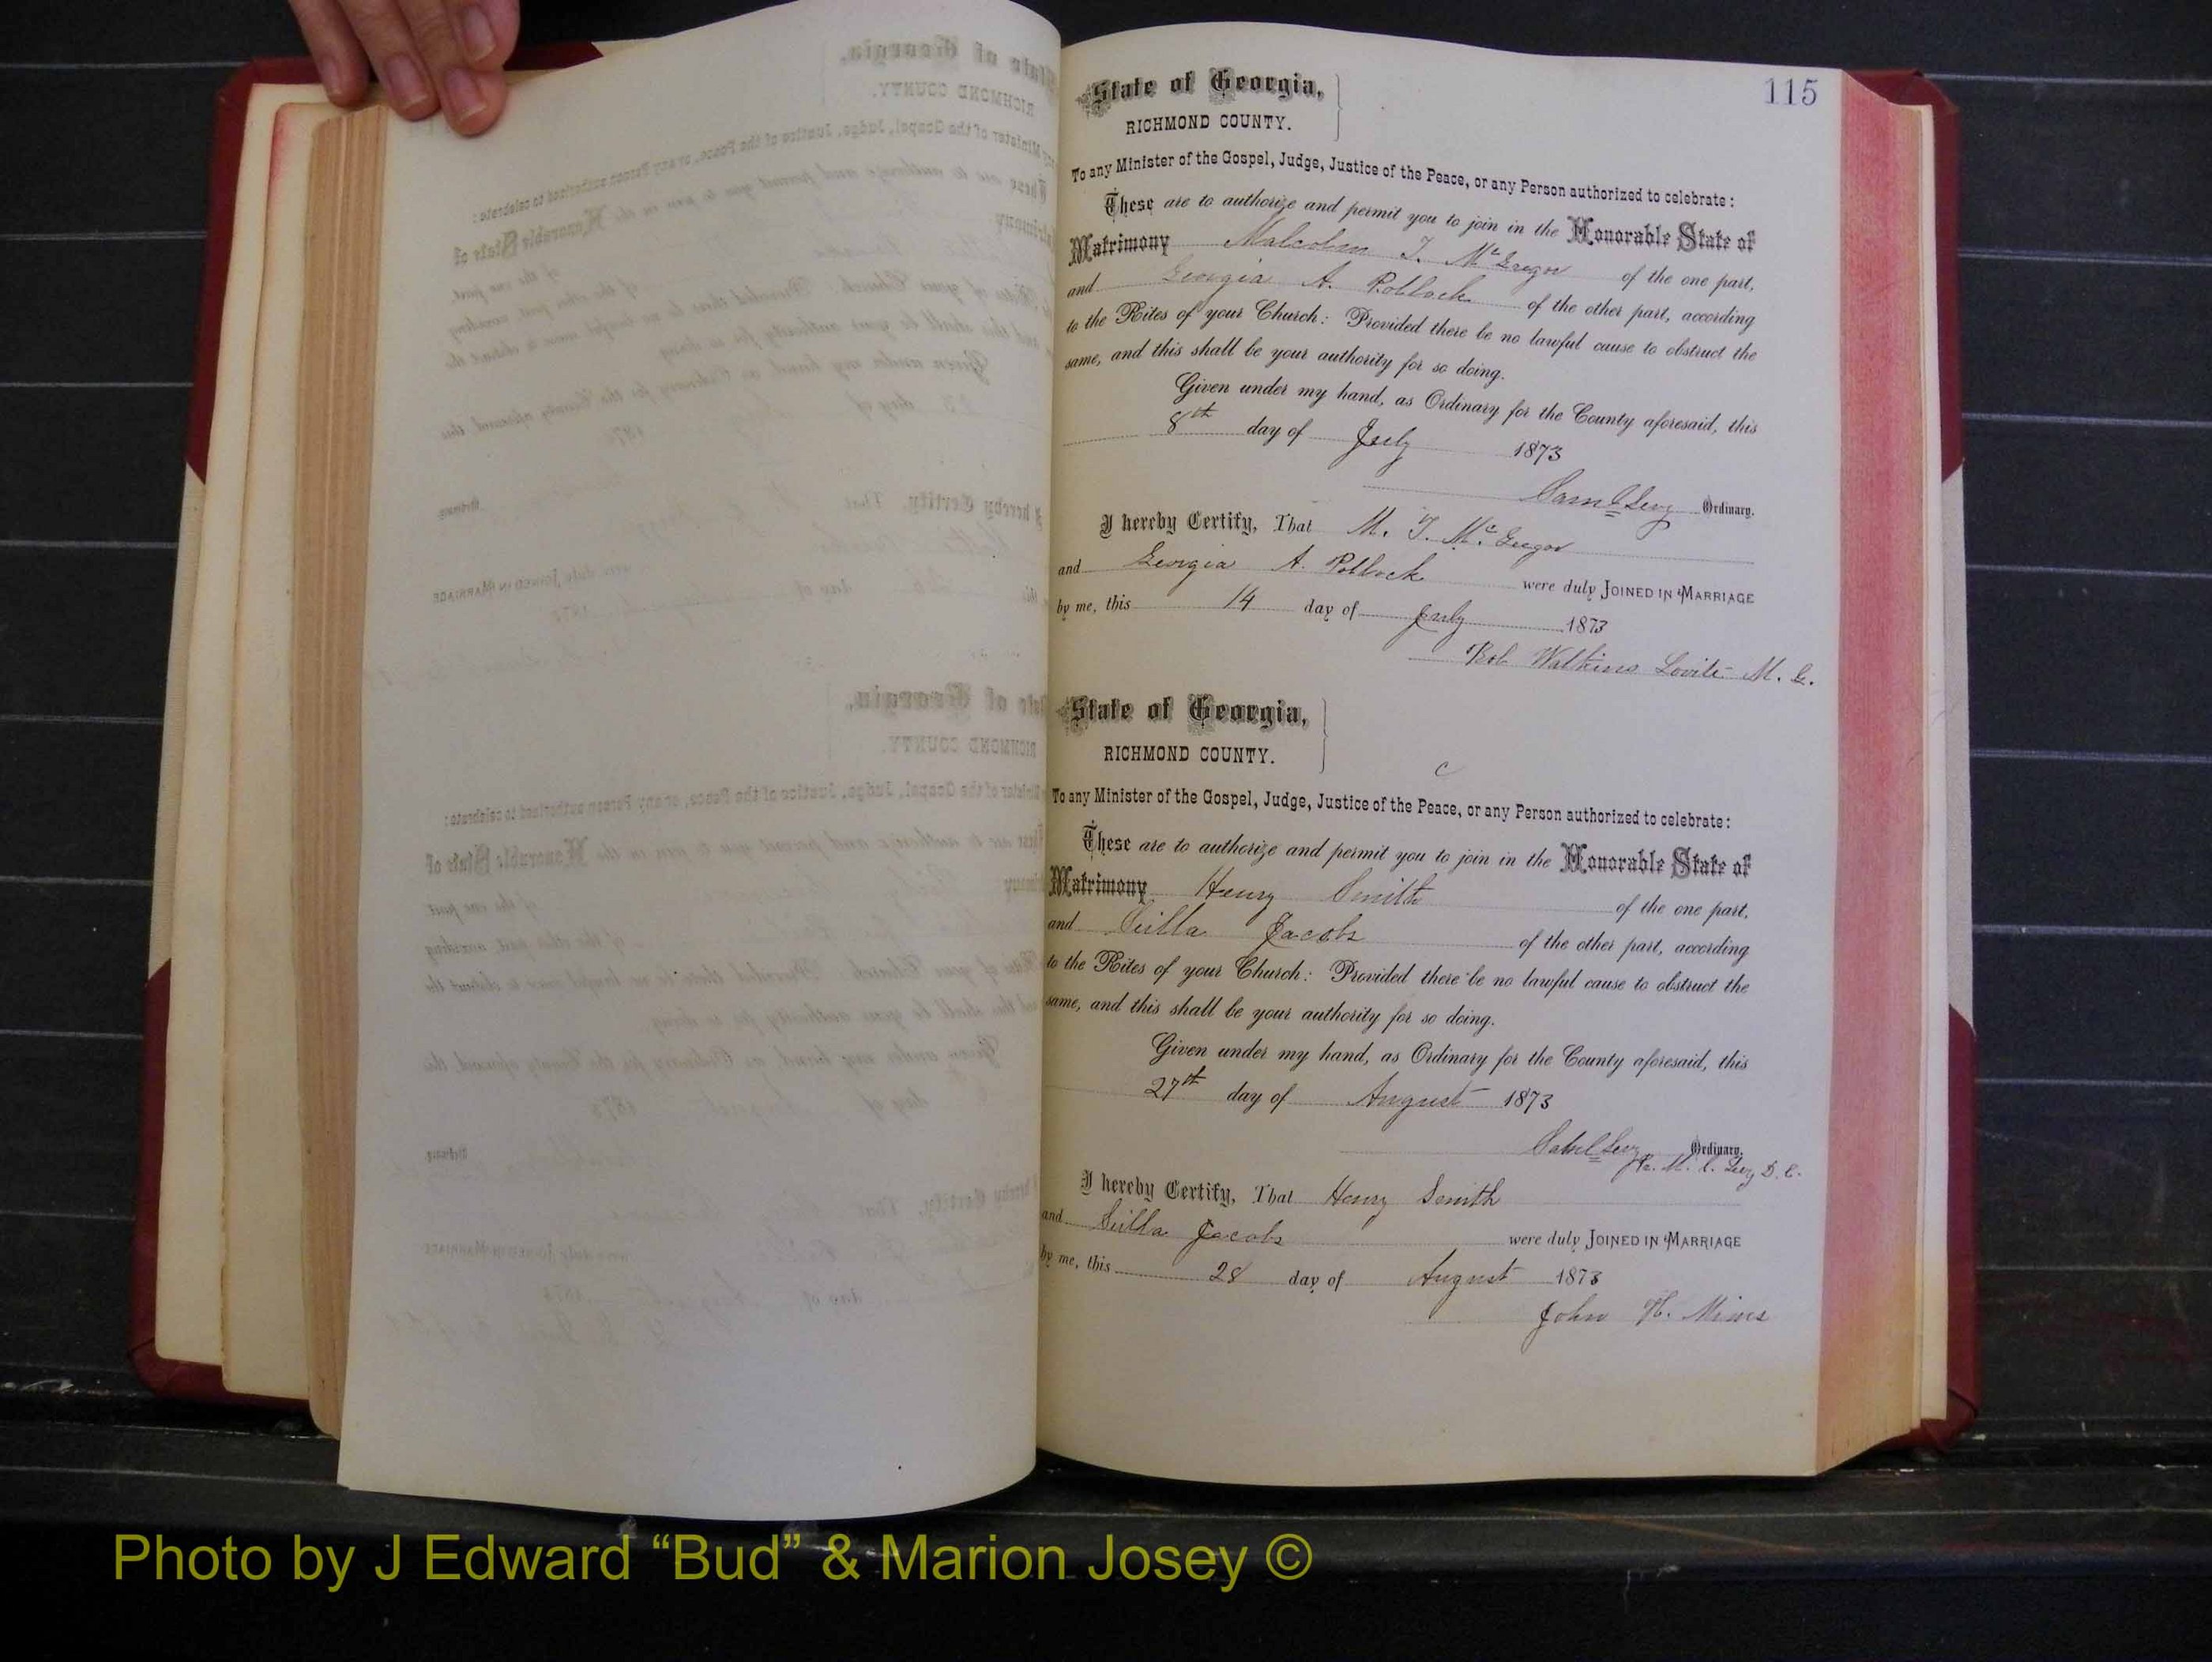 115
State of Georgia,
RICHMOND COUNTY.
To any Minister of the Gospel, Judge, Justice of the Peace, or any Person authorized to celebrate:
These are to authorize and permit you to join in the Honorable State of
Matrimony Malcolm T. McGregor of the one part,
and Georgia A. Pollock of the other part, according
to the Rites of your Church: Provided there be no lawful cause to obstruct the
same, and this shall be your authority for so doing.
Given under my hand, as Ordinary for the County aforesaid, this
8th day of July 1873
Saml Levy Ordinary.
I hereby Certify, That M. T. McGregor
and Georgia A. Pollock were duly JOINED IN MARRIAGE
by me, this 14 day of July 1873
Bob Watkins Lovite M. G.
State of Georgia,
RICHMOND COUNTY.
c
To any Minister of the Gospel, Judge, Justice of the Peace, or any Person authorized to celebrate:
These are to authorize and permit you to join in the Honorable State of
Matrimony Henry Smith of the one part,
and Silla Jacobs of the other part, according
to the Rites of your Church: Provided there be no lawful cause to obstruct the
same, and this shall be your authority for so doing.
Given under my hand, as Ordinary for the County aforesaid, this
27th day of August 1873
Saml Levy Ordinary.
M. C. Levy D. C.
I hereby Certify, That Henry Smith
and Silla Jacobs were duly JOINED IN MARRIAGE
by me, this 28 day of August 1873
John H. Mines
Photo by J Edward “Bud” & Marion Josey ©